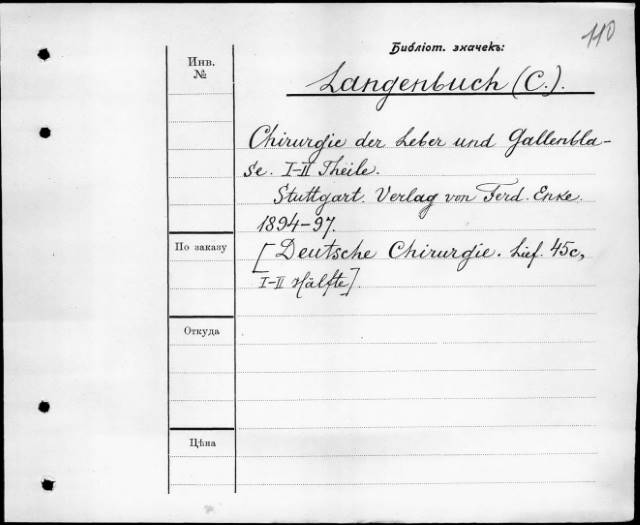 110
Библіот. значекъ:
Инв.
№
Langenbuch (C.).
Chirurgie der Leber und Gallenbla-
se. I-II Theile.
Stuttgart. Verlag von Ferd. Enke.
1894-97.
По заказу
[Deutsche Chirurgie. Lief. 45c,
I-II Hälfte].
Откуда
Цѣна